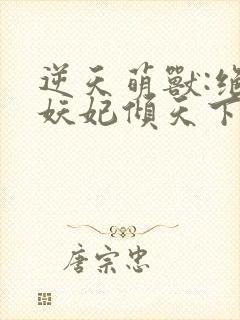 逆天萌獸:絕
妖妃傾天下
唐宗忠